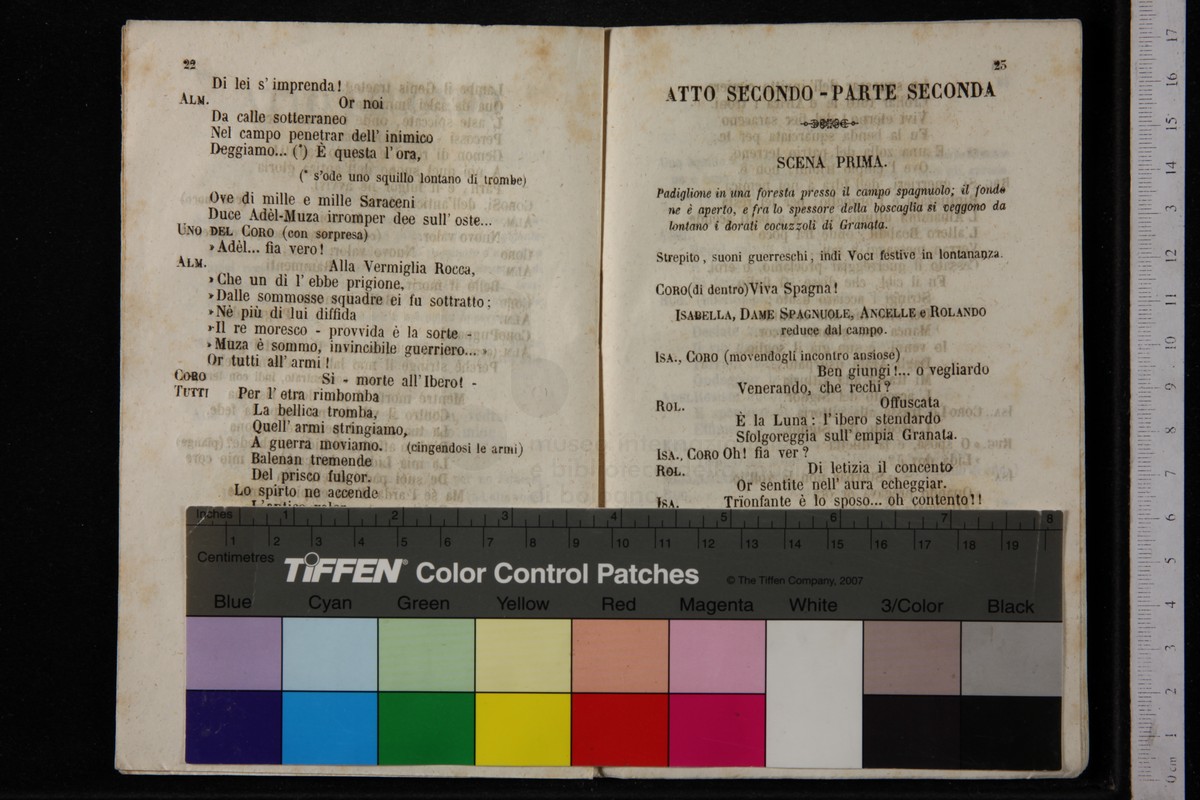 22
Di lei s' imprenda!
ALM. Or noi
Da calle sotterraneo
Nel campo penetrar dell' inimico
Deggiamo... (*) È questa l'ora,
(* s'ode uno squillo lontano di trombe)
Ove di mille e mille Saraceni
Duce Adèl-Muza irromper dee sull' oste...
UNO DEL CORO (con sorpresa)
» Adèl... fia vero!
ALM. Alla Vermiglia Rocca,
» Che un dì l' ebbe prigione,
» Dalle sommosse squadre ei fu sottratto;
» Nè più di lui diffida
» Il re moresco - provvida è la sorte -
» Muza è sommo, invincibile guerriero... »
Or tutti all' armi!
CORO Si - morte all' Ibero! -
TUTTI Per l' etra rimbomba
La bellica tromba,
Quell' armi stringiamo,
A guerra moviamo. (cingendosi le armi)
Balenan tremende
Del prisco fulgor.
Lo spirto ne accende
25
ATTO SECONDO - PARTE SECONDA
SCENA PRIMA.
Padiglione in una foresta presso il campo spagnuolo; il fondo
ne è aperto, e fra lo spessore della boscaglia si veggono da
lontano i dorati cocuzzoli di Granata.
Strepito, suoni guerreschi, indi Voci festive in lontananza.
CORO (di dentro) Viva Spagna!
ISABELLA, DAME SPAGNUOLE, ANCELLE e ROLANDO
reduce dal campo.
ISA., CORO (movendogli incontro ansiose)
Ben giungi!... o vegliardo
Venerando, che rechi?
ROL. Offuscata
È la Luna: l'ibero stendardo
Sfolgoreggia sull' empia Granata.
ISA., CORO Oh! fia ver?
ROL. Di letizia il concento
Or sentite nell' aura echeggiar.
ISA. Trionfante è lo sposo... oh contento!!
Inches 1 2 3 4 5 6 7 8
1 2 3 4 5 6 7 8 9 10 11 12 13 14 15 16 17 18 19
Centimetres
TIFFEN® Color Control Patches © The Tiffen Company, 2007
Blue Cyan Green Yellow Red Magenta White 3/Color Black